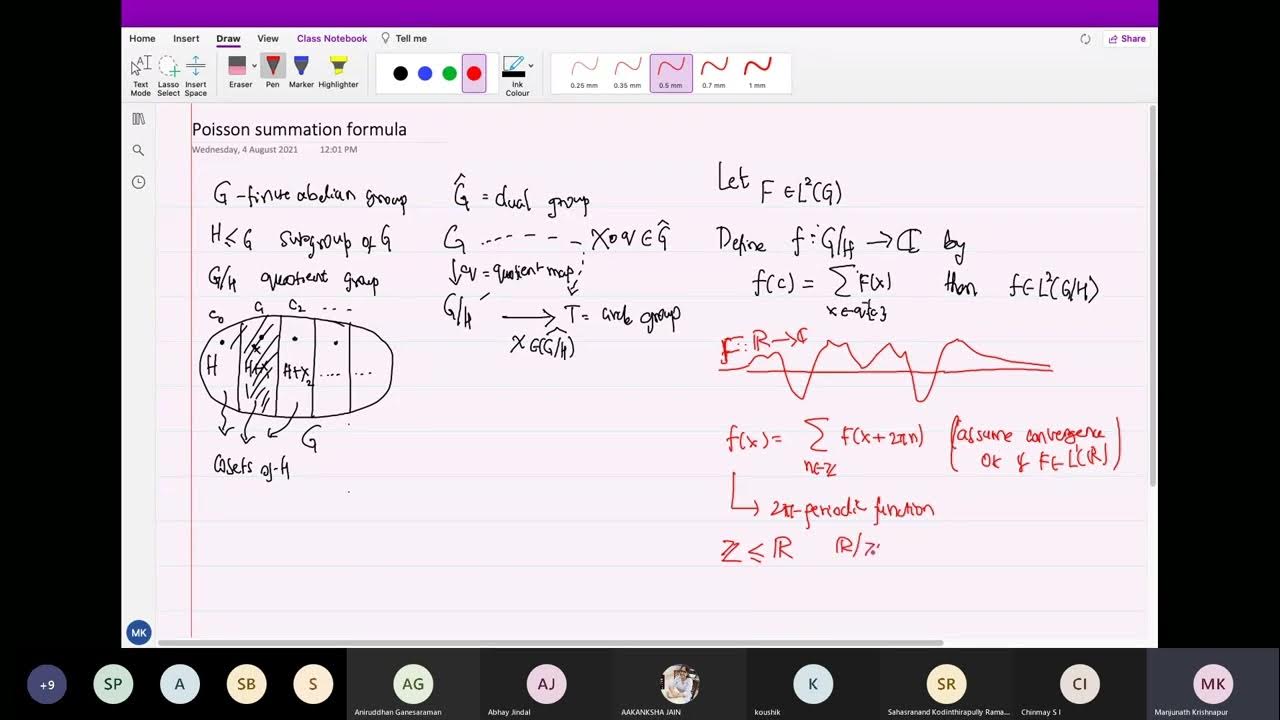 Home Insert Draw View Class Notebook Tell me
Share
Text Mode
Lasso Select
Insert Space
Eraser
Pen
Marker
Highlighter
Ink Colour
0.25 mm
0.35 mm
0.5 mm
0.7 mm
1 mm
Poisson summation formula
Wednesday, 4 August 2021 12:01 PM
G - finite abelian group
H ≤ G subgroup of G
G/H quotient group
C₀ C₁ C₂ ...
H H+x₁ H+x₂ .... ...
G
Cosets of H
Ĝ = dual group
G χ∘q ∈ Ĝ
↓ q = quotient map
G/H → T = circle group
χ ∈ (G/H)^
Let F ∈ L²(G)
Define f: G/H → ℂ by
f(c) = ∑ F(x) then f ∈ L²(G/H)
x ∈ q⁻¹{c}
F: ℝ → ℂ
f(x) = ∑ F(x+2πn) (assume convergence
n∈ℤ OK if F ∈ L¹(ℝ))
↳ 2π-periodic function
ℤ ≤ ℝ ℝ/ℤ
MK
+9
SP
A
SB
S
AG
Aniruddhan Ganesaraman
AJ
Abhay Jindal
AAKANKSHA JAIN
K
koushik
SR
Sahasranand Kodinthirapully Rama...
CI
Chinmay S I
MK
Manjunath Krishnapur